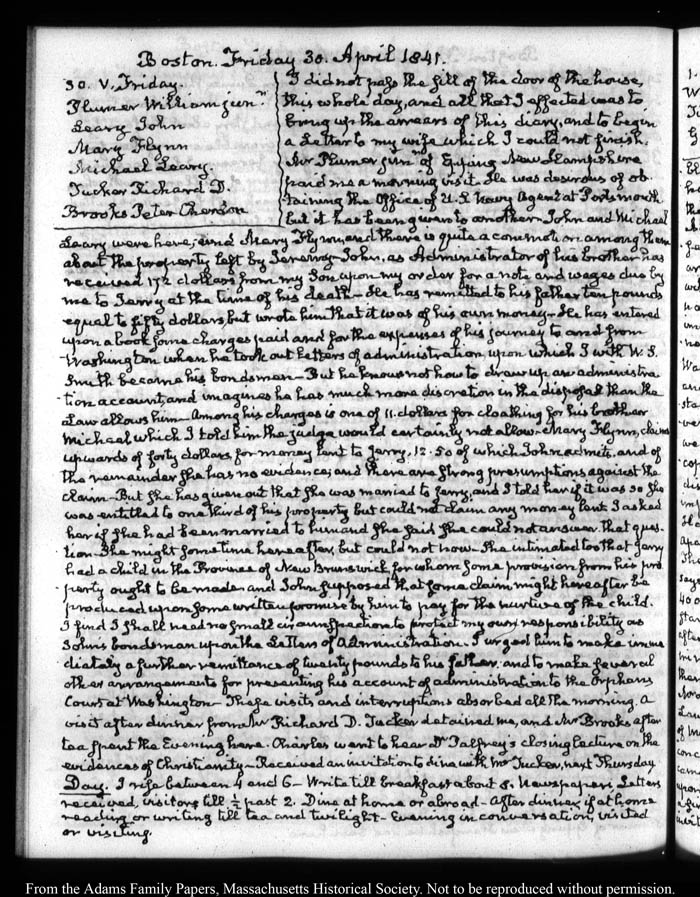 Boston. Friday 30. April 1841.
30. V. Friday.
Plumer William jun.r
Leary John
Mary Flynn
Michael Leary.
Tucker Richard D.
Brooks Peter Chardon
I did not pass the sill of the door of the house,
this whole day, and all that I effected was to
bring up the arrears of this diary, and to begin
a Letter to my wife which I could not finish.
Mr Plumer jun.r of Epping New-Hampshire
paid me a morning visit. He was desirous of ob-
taining the Office of U.S. Navy Agent at Portsmouth
but it has been given to another. John and Michael
Leary were here, and Mary Flynn, and there is quite a commotion among them
about the property left by Jeremy. John, as Administrator of his brother has
received 172 dollars from my Son upon my order for a note and wages due by
me to Jerry at the time of his death. He has remitted to his father ten pounds
equal to fifty dollars, but wrote him that it was of his own money. He has entered
upon a book some charges paid and for the expenses of his journey to and from
Washington when he took out Letters of administration, upon which I with W. S.
Smith became his bondsman. But he knows not how to draw up an administra-
tion account, and imagines he has much more discretion in the disposal than the
Law allows him. Among his charges is one of 11. dollars for cloathing for his brother
Michael which I told him the judge would certainly not allow. Mary Flynn, claims
upwards of forty dollars for money lent to Jerry, 12.50 of which John admits, and of
the remainder she has no evidence; and there are strong presumptions against the
claim. But she has given out that she was married to Jerry, and I told her if it was so she
was entitled to one third of his property but could not claim any money lent. I asked
her if she had been married to him and she said she could not answer that ques-
tion. She might sometime hereafter, but could not now. She intimated too that Jerry
had a child in the Province of New Brunswick, for whom some provision from his pro-
perty ought to be made and John supposed that some claim might hereafter be
produced upon some written promise by him to pay for the nurture of the child.
I find I shall need no small circumspection to protect my own responsibility as
John's bondsman upon the Letters of Administration. I urged him to make imme-
diately a further remittance of twenty pounds to his father, and to make several
other arrangements for presenting his account of administration to the Orphans
Court at Washington. These visits and interruptions absorbed all the morning. A
visit after dinner from Mr Richard D. Tucker detained me, and Mr Brooks after
tea spent the Evening here. Charles went to hear Dr Palfrey's closing lecture on the
evidences of Christianity. Received an invitation to dine with Mr Tucker, next Thursday
Day. I rise between 4 and 6. Write till breakfast about 8. Newspapers, Letters
received, visitors till ½ past 2. Dine at home or abroad. After dinner if at home
reading or writing till tea and twilight. Evening in conversation, visited
or visiting.
From the Adams Family Papers, Massachusetts Historical Society. Not to be reproduced without permission.